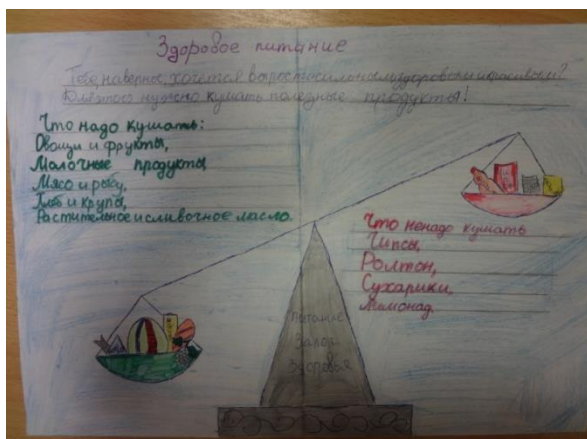 Здоровое питание
Тебе, наверное, хочется вырасти сильным, здоровым и красивым?
Для этого нужно кушать полезные продукты!
Что надо кушать:
Овощи и фрукты,
Молочные продукты,
Мясо и рыбу,
Хлеб и крупы,
Растительное и сливочное масло.
Что ненадо кушать
Чипсы,
Ролтон,
Сухарики,
Лимонад.
Питание
Залог
Здоровья